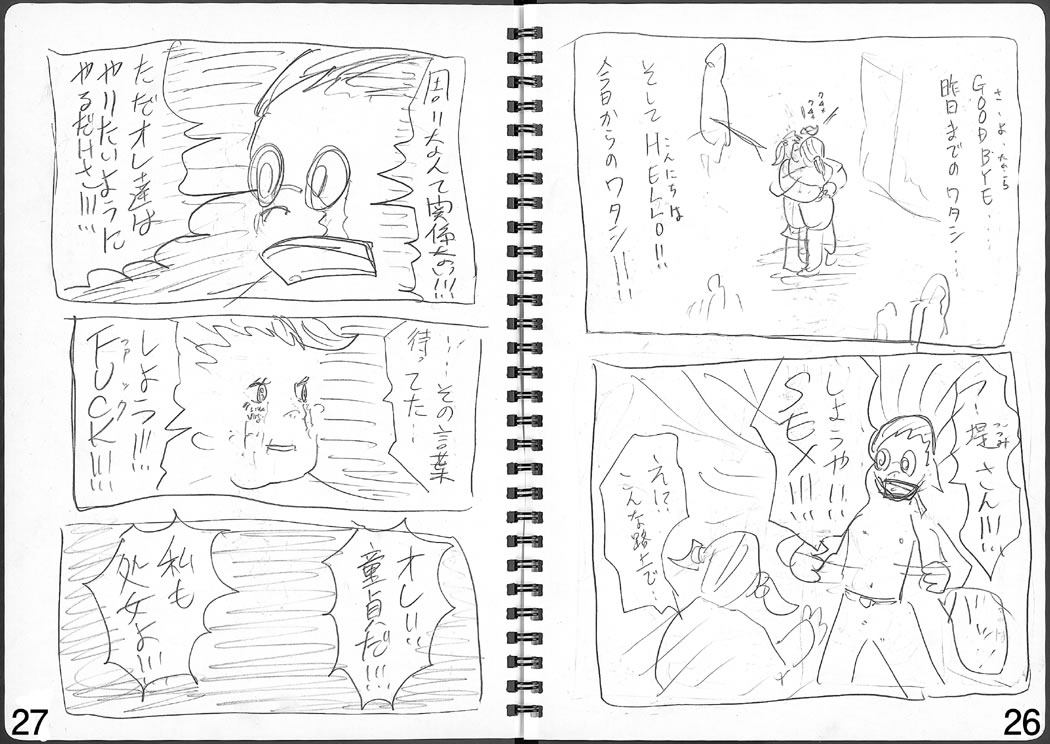 さよなら
GOOD BYE・・・
昨日までのワタシ・・・
こんにちは
そしてHELLO!!
今日からのワタシー!!
つつみ
つー堤さん!!!
しようや!!!
SEX!!!
え!?
こんな路上で・・・
周りなんて関係ない!!!
ただオレ達は
やりたいように
やるだけさ!!!
・・・その言葉
待ってた・・・
しよう!!!
ファック
FUCK!!!!
オレ・・・
童貞だ!!!
私も
処女よ!!!
27
26